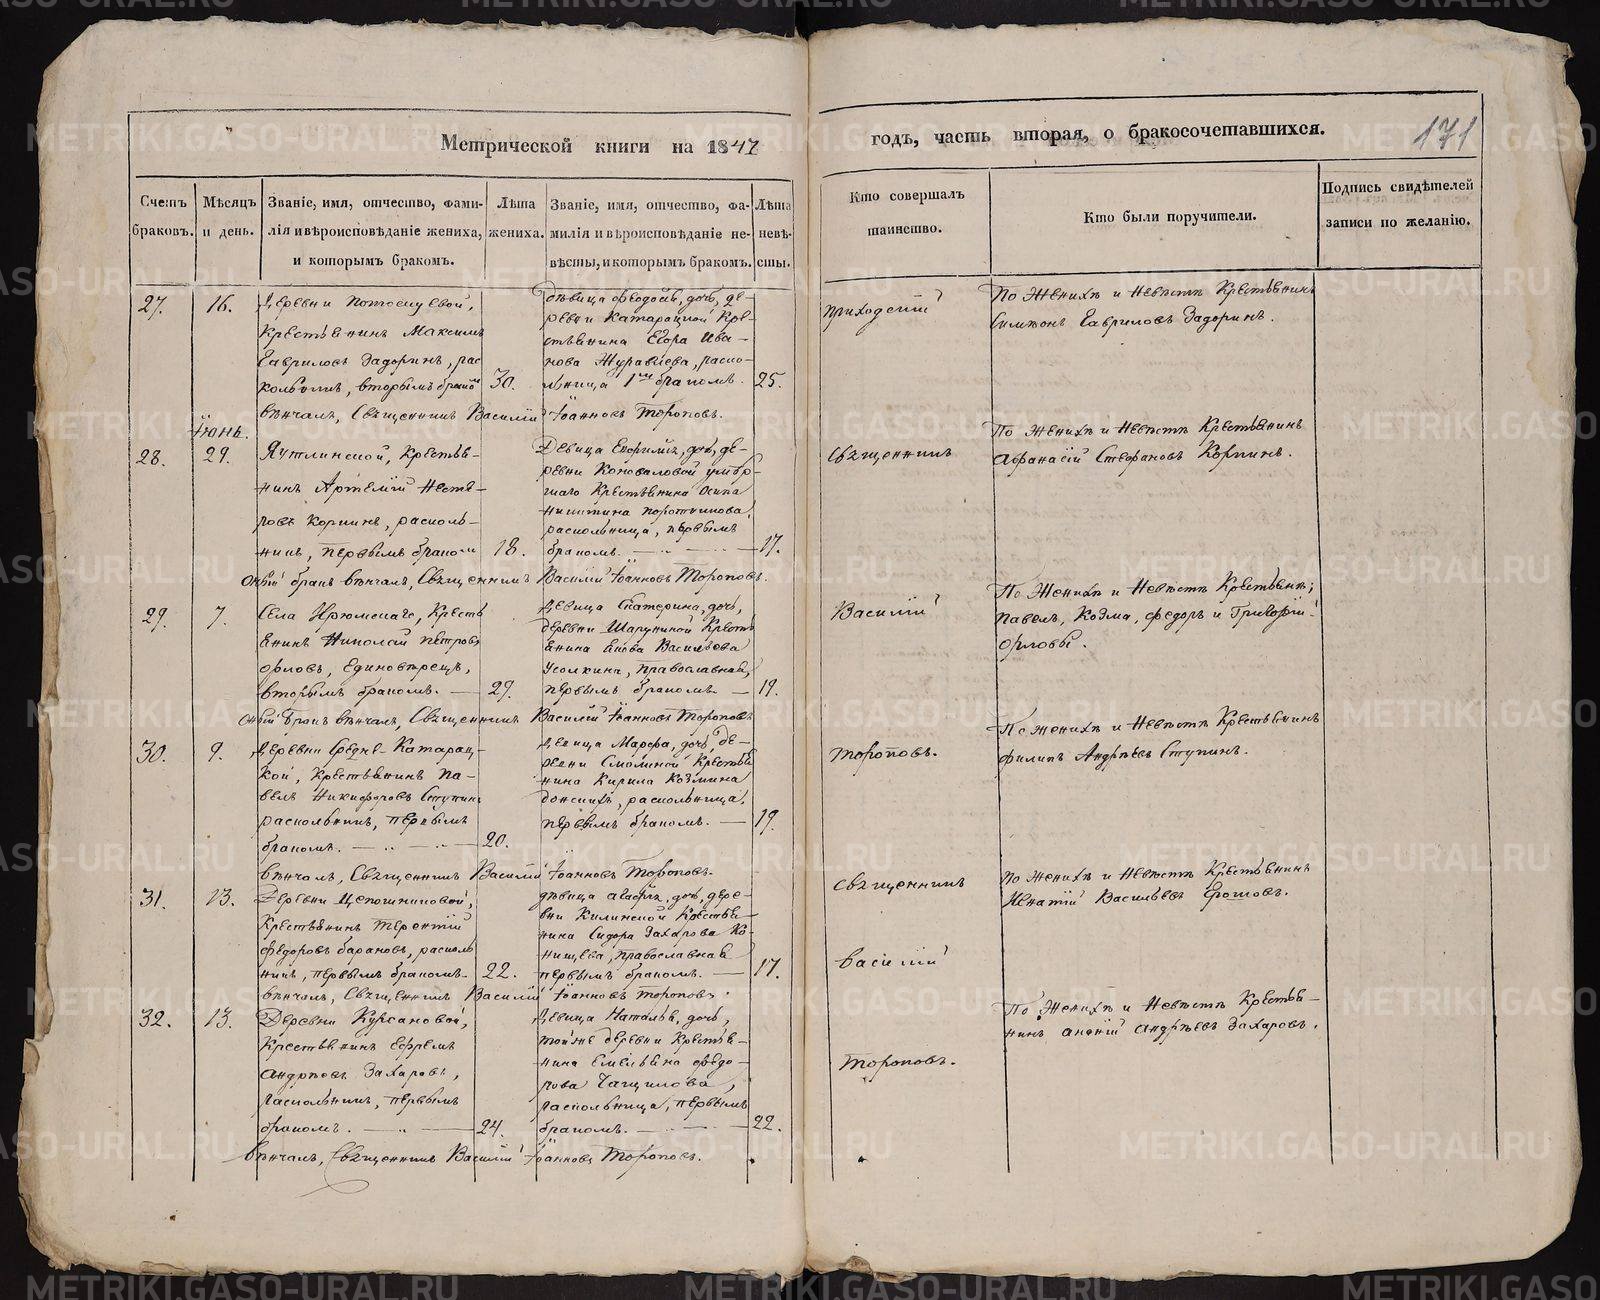 Метрической книги на 1847
годъ, часть вторая, о бракосочетавшихся.
171
Счетъ браковъ.
Мѣсяцъ и день.
Званіе, имя, отчество, фами-
лія и вѣроисповѣданіе жениха,
и которымъ бракомъ.
Лѣта жениха.
Званіе, имя, отчество, фа-
милія и вѣроисповѣданіе не-
вѣсты, и которымъ бракомъ.
Лѣта невѣ-
сты.
Кто совершалъ
таинство.
Кто были поручители.
Подпись свидѣтелей
записи по желанію.
27.
16.
Деревни
Крестьянинъ Максимъ
Гавриловъ Задоринъ, рас
кольникъ, вторымъ бракомъ
30.
дѣвица Федосья, дочь, де-
ревни Катарацкой Кре-
стьянина Егора Ива-
нова Журавлева, раско-
льница 1мъ бракомъ.
25.
приходскій
По Женихѣ и Невѣстѣ Крестьянинъ
Симіонъ Гавриловъ Задоринъ.
вѣнчалъ, Священникъ Василій Іоанновъ Тороповъ.
Іюнь.
28.
29.
Яутлинской, Крестья-
нинъ Артемій Несте-
ровъ Коркинъ, расколь-
никъ, первымъ бракомъ
18.
Девица Евфимья, дочь, де-
ревни Коноваловой умер-
шаго Крестьянина Осипа
Никитина
раскольница, первымъ
бракомъ.
17.
Священникъ
По Женихѣ и Невѣстѣ Крестьянинъ
Афанасій Стефановъ Коркинъ.
Оный бракъ вѣнчалъ, Священникъ Василій Іоанновъ Тороповъ.
29.
7.
Села Ирюмскаго, Кресть
янинъ Николай Петровъ
Орловъ, Единовѣрецъ,
вторымъ бракомъ.
29.
Девица Екатерина, дочь,
деревни Шарушиной Кресть
янина Якова Васильева
Усолкина, православная,
первымъ бракомъ.
19.
Василій
По Женихѣ и Невѣстѣ Крестьяне;
Павелъ, Козма, Федоръ и Григорій
Орловы.
Оный Бракъ вѣнчалъ, Священникъ Василій Іоанновъ Тороповъ
30.
9.
Деревни Средне-Катарац-
кой, Крестьянинъ Па-
велъ Никифоровъ Ступинъ
раскольникъ, первымъ
бракомъ.
20.
Девица Марфа, дочь, де-
ревни Смолиной Крестья
нина Кирила Козмина
Донскихъ, раскольница,
первымъ бракомъ.
19.
Тороповъ.
По женихѣ и Невѣстѣ Крестьянинъ
Филипъ Андрѣевъ Ступинъ.
вѣнчалъ, Священникъ Василій Іоанновъ Тороповъ.
31.
13.
Деревни
Крестьянинъ Терентій
Федоровъ Барановъ, расколь
никъ, первымъ бракомъ.
22.
дѣвица Агафья, дочь, дере-
вни Килинской Крестья-
нина Сидора Захарова Ко-
нищева, православная
первымъ бракомъ.
17.
Священникъ
Василій
По Женихѣ и Невѣстѣ Крестьянинъ
Игнатій Васильевъ
вѣнчалъ, Священникъ Василій Іоанновъ Тороповъ.
32.
13.
Деревни Курсановой,
Крестьянинъ Ефремъ
Андрѣевъ Захаровъ,
раскольникъ, первымъ
бракомъ.
24.
Девица Наталья, дочь,
той же деревни Крестья-
нина Емельяна Федо-
рова
раскольница, первымъ
бракомъ.
22.
Тороповъ.
По Женихѣ и Невѣстѣ Крестья-
нинъ Ананій Андрѣевъ Захаровъ.
вѣнчалъ, Священникъ Василій Іоанновъ Тороповъ.
METRIKI.GASO-URAL.RU